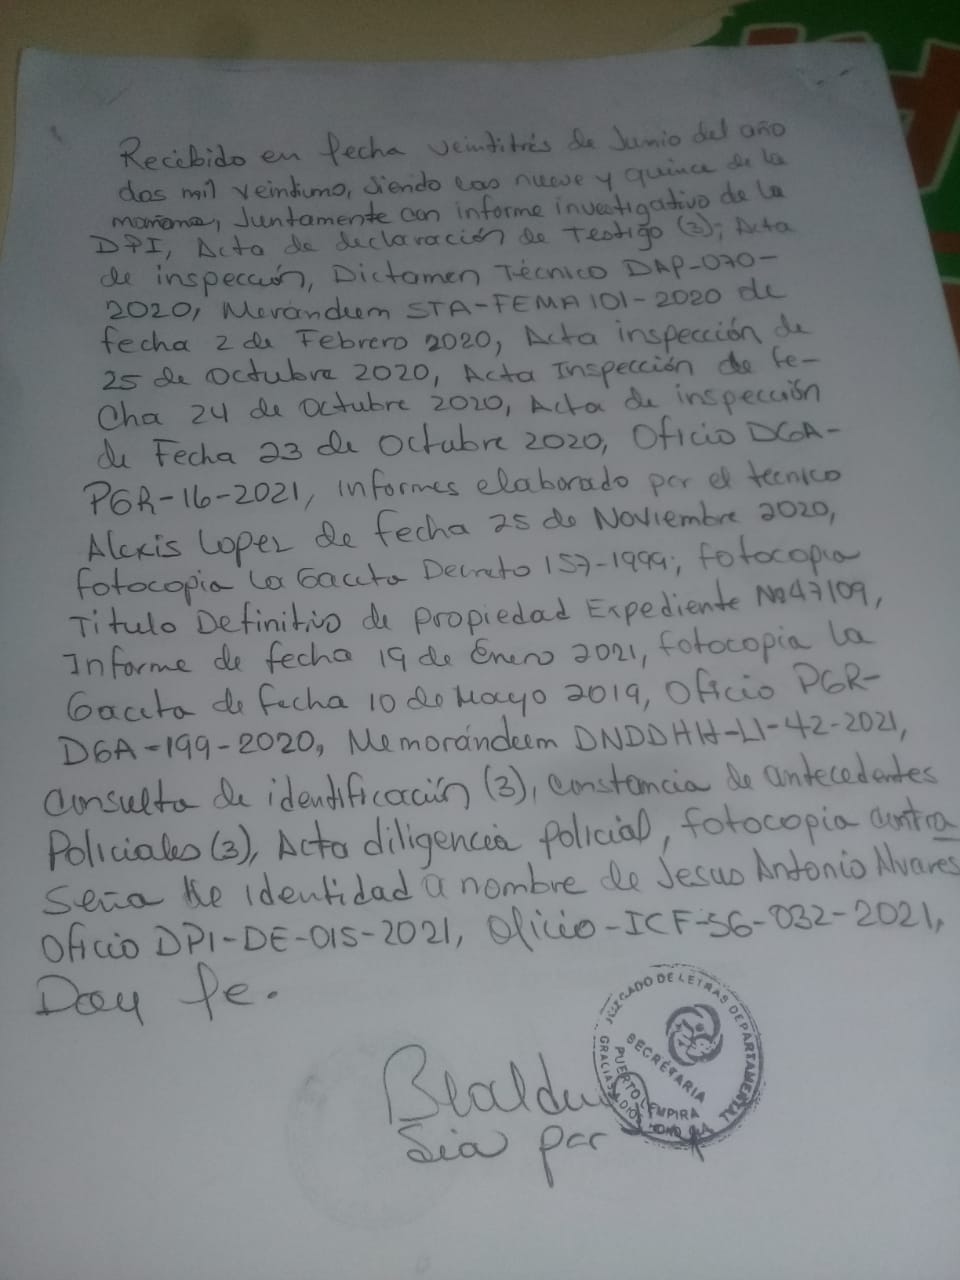 Recibido en fecha veintitrés de Junio del año
dos mil veintiuno, siendo las nueve y quince de la
mañana, Juntamente con informe investigativo de la
DPI, Acta de declaración de Testigo (3); Acta
de inspección, Dictamen Técnico DAP-070-
2020, Merándum STA-FEMA 101-2020 de
fecha 2 de Febrero 2020, Acta inspección de
25 de Octubre 2020, Acta Inspección de Fe-
cha 24 de Octubre 2020, Acta de inspección
de Fecha 23 de Octubre 2020, Oficio DGA-
PGR-16-2021, informes elaborado por el técnico
Alexis Lopez de fecha 25 de Noviembre 2020,
fotocopia la Gaceta Decreto 157-1999; fotocopia
Titulo Definitivo de propiedad Expediente No 47109,
Informe de fecha 19 de Enero 2021, fotocopia la
Gaceta de fecha 10 de Mayo 2019, Oficio PGR-
DGA-199-2020, Memorándum DNDDHH-LI-42-2021,
consulta de identificación (3), constancia de antecedentes
Policiales (3), Acta diligencia policial, fotocopia contra
Seña de identidad a nombre de Jesus Antonio Alvares
Oficio DPI-DE-015-2021, Oficio-ICF-36-032-2021,
Doy fe.
JUZGADO DE LETRAS DEPARTAMENTAL
SECRETARIA
PUERTO LEMPIRA
GRACIAS A DIOS
Sia por